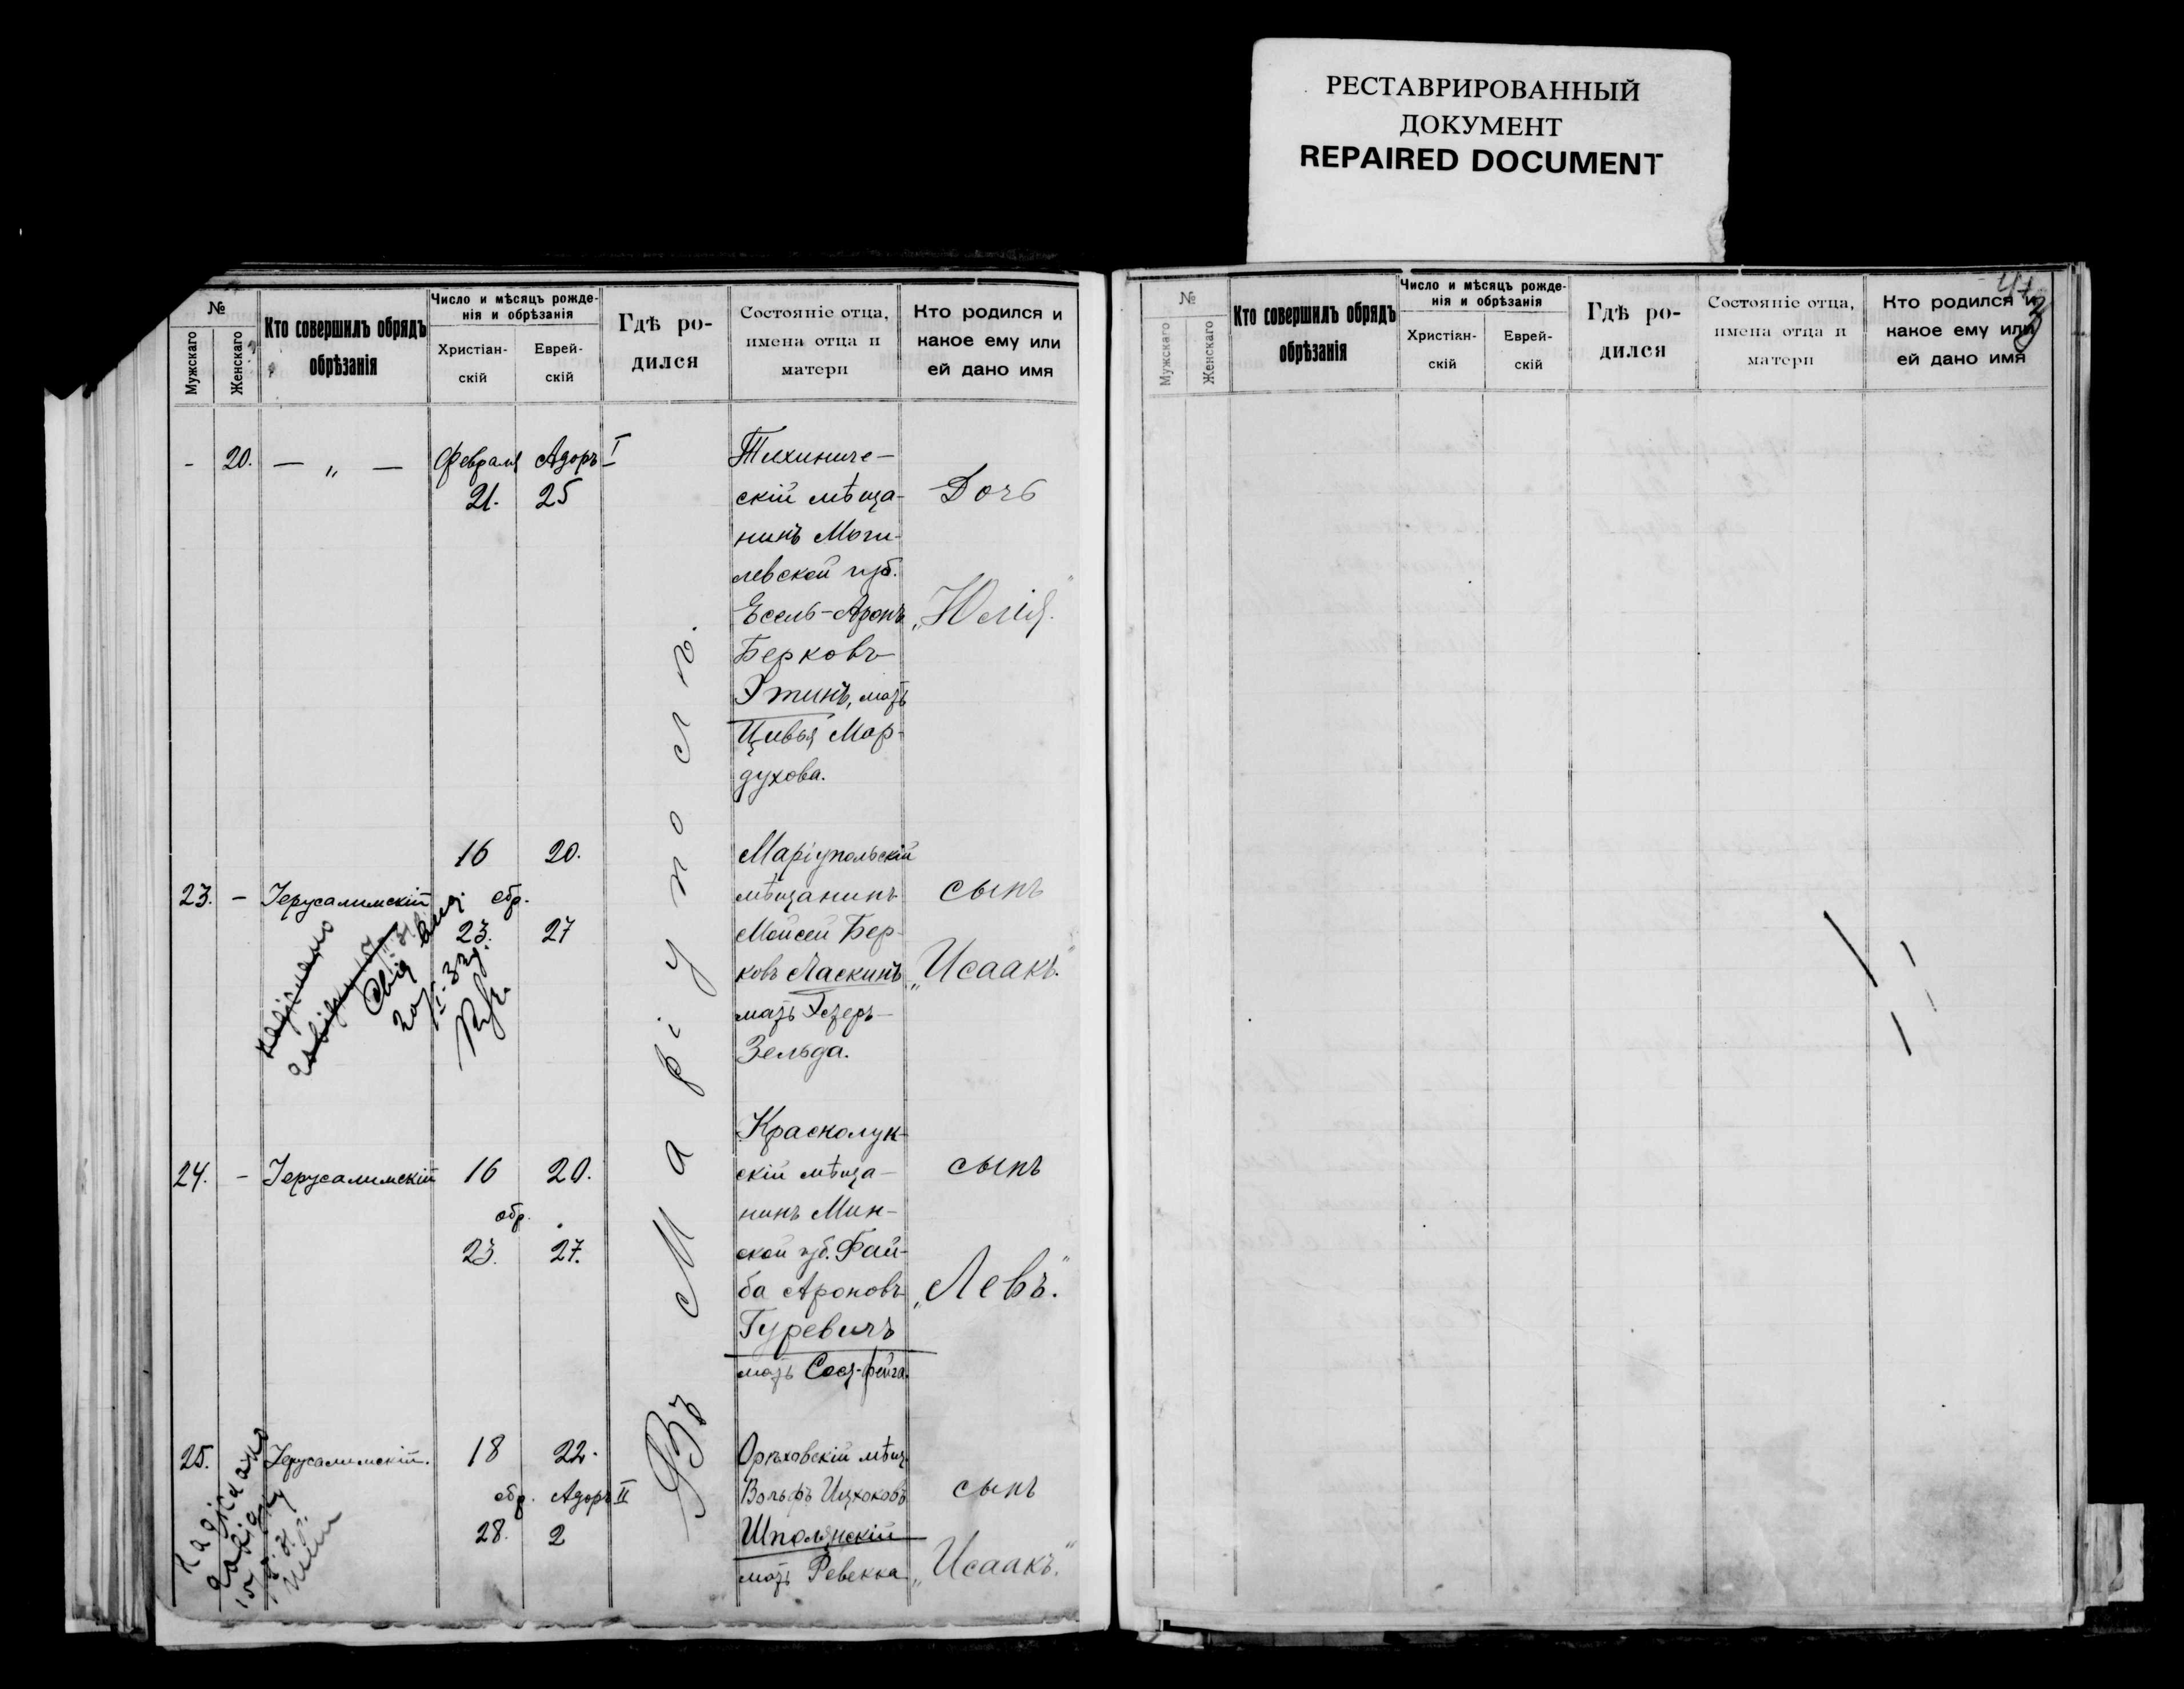 РЕСТАВРИРОВАННЫЙ
ДОКУМЕНТ
REPAIRED DOCUMENT
№
Мужскаго
Женскаго
Кто совершилъ обрядъ
обрѣзанія
Число и мѣсяцъ рожде-
нія и обрѣзанія
Христіан-
скій
Еврей-
скій
Гдѣ ро-
дился
Состояніе отца,
имена отца и
матери
Кто родился и
какое ему или
ей дано имя
- 20. — „ — Февраля Адоръ I
21. 25
Тихиниче-
скій мѣща-
нинъ Моги-
левской губ.
Есель-Аронъ
Берковъ
Этинъ, мать
Цивья Мор-
духова.
Дочь
„Юлія."
Въ Маріуполѣ.
23. - Іерусалимскій
16 20.
обр.
23. 27
Маріупольскій
мѣщанинъ
Мойсей Бер-
ковъ Ласкинъ
мать Эстеръ-
Зельда.
сынъ
„Исаакъ."
24. - Іерусалимскій 16 20.
обр.
23. 27.
скій мѣща-
нинъ Мин-
ской губ. Фай-
ба Ароновъ
Гуревичъ
мать Сося-фейга.
сынъ
„Левъ."
25. Іерусалимскій. 18 22.
обр. Адоръ II
28. 2
Орѣховскій мѣщ.
Вольфъ Ицхоковъ
Шполянскій
мать Ревекка
сынъ
„Исаакъ."
№
Мужскаго
Женскаго
Кто совершилъ обрядъ
обрѣзанія
Число и мѣсяцъ рожде-
нія и обрѣзанія
Христіан-
скій
Еврей-
скій
Гдѣ ро-
дился
Состояніе отца,
имена отца и
матери
Кто родился и
какое ему или
ей дано имя